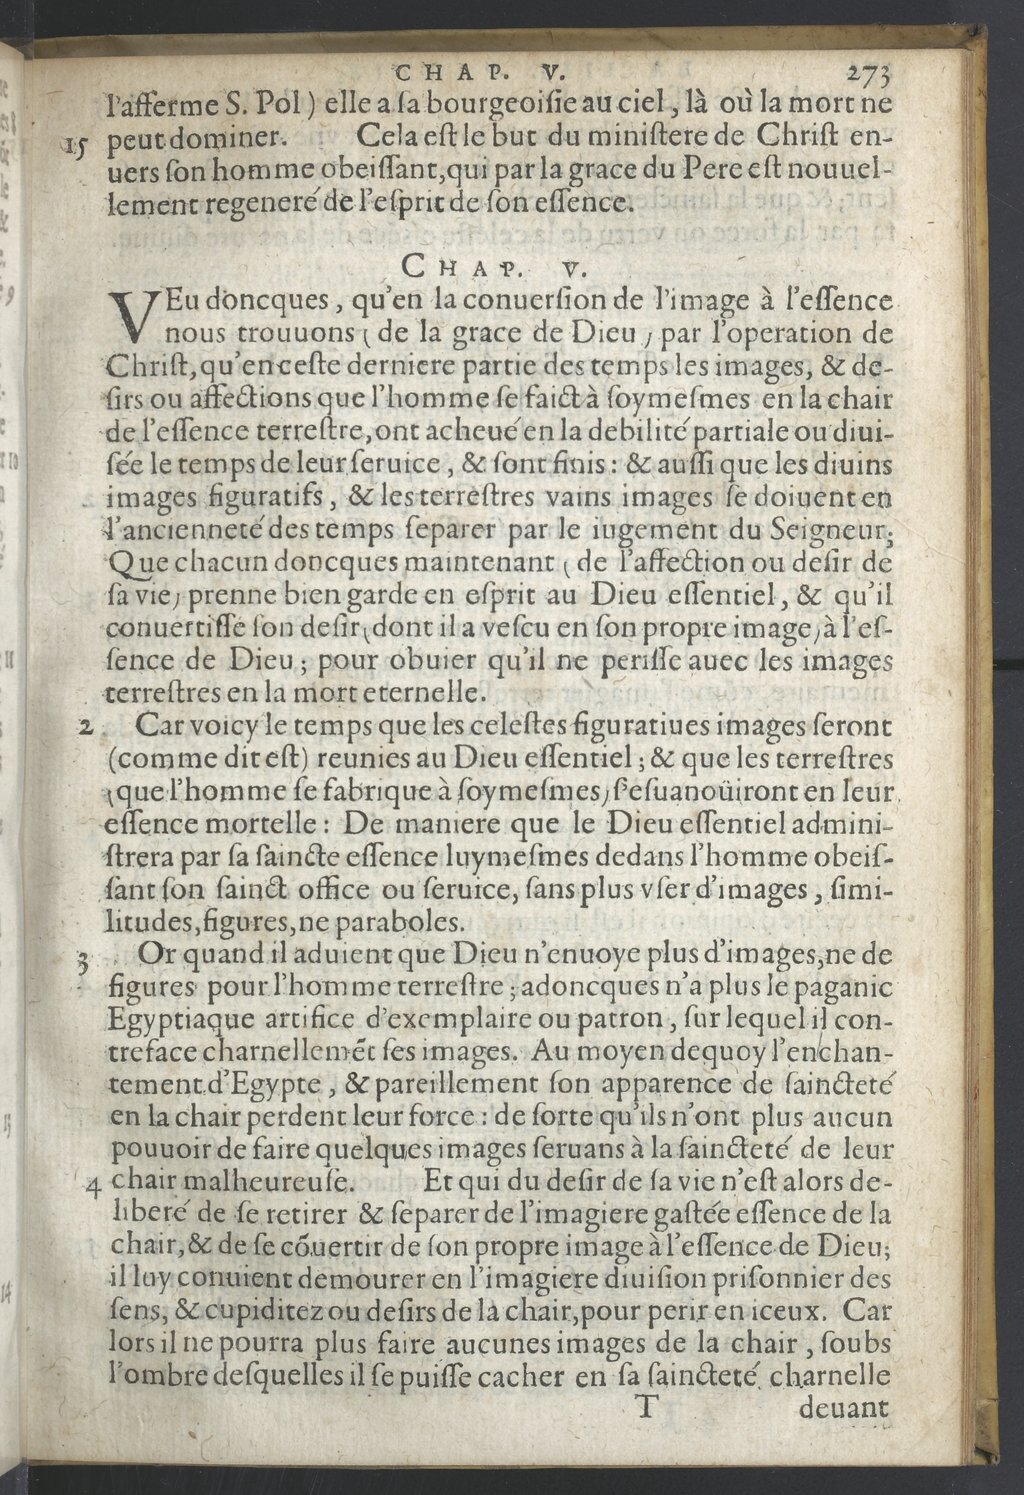 CHAP. V. 273
l'afferme S. Pol) elle a ſa bourgeoiſie au ciel, là où la mort ne
15 peut dominer. Cela eſt le but du miniſtere de Chriſt en-
uers ſon homme obeiſſant, qui par la grace du Pere eſt nouuel-
lement regeneré de l'eſprit de ſon eſſence.
CHAP. V.
VEu doncques, qu'en la conuerſion de l'image à l'eſſence
nous trouuons (de la grace de Dieu) par l'operation de
Chriſt, qu'en ceſte derniere partie des temps les images, & de-
ſirs ou affections que l'homme ſe faict à ſoymeſmes en la chair
de l'eſſence terreſtre, ont acheué en la debilité partiale ou diui-
ſée le temps de leur ſeruice, & ſont finis: & auſſi que les diuins
images figuratifs, & les terreſtres vains images ſe doiuent en
l'ancienneté des temps ſeparer par le iugement du Seigneur;
Que chacun doncques maintenant (de l'affection ou deſir de
ſa vie) prenne bien garde en eſprit au Dieu eſſentiel, & qu'il
conuertiſſe ſon deſir (dont il a veſcu en ſon propre image) à l'eſ-
ſence de Dieu; pour obuier qu'il ne periſſe auec les images
terreſtres en la mort eternelle.
2 Car voicy le temps que les celeſtes figuratiues images ſeront
(comme dit eſt) reunies au Dieu eſſentiel; & que les terreſtres
(que l'homme ſe fabrique à ſoymeſmes) s'eſuanoüiront en leur
eſſence mortelle: De maniere que le Dieu eſſentiel admini-
ſtrera par ſa ſaincte eſſence luymeſmes dedans l'homme obeiſ-
ſant ſon ſainct office ou ſeruice, ſans plus vſer d'images, ſimi-
litudes, figures, ne paraboles.
3 Or quand il aduient que Dieu n'enuoye plus d'images, ne de
figures pour l'homme terreſtre; adoncques n'a plus le paganic
Egyptiaque artifice d'exemplaire ou patron, ſur lequel il con-
treface charnellemẽt ſes images. Au moyen dequoy l'enchan-
tement d'Egypte, & pareillement ſon apparence de ſaincteté
en la chair perdent leur force: de ſorte qu'ils n'ont plus aucun
pouuoir de faire quelques images ſeruans à la ſaincteté de leur
4 chair malheureuſe. Et qui du deſir de ſa vie n'eſt alors de-
liberé de ſe retirer & ſeparer de l'imagiere gaſtée eſſence de la
chair, & de ſe cõuertir de ſon propre image à l'eſſence de Dieu;
il luy conuient demourer en l'imagiere diuiſion priſonnier des
ſens, & cupiditez ou deſirs de la chair, pour perir en iceux. Car
lors il ne pourra plus faire aucunes images de la chair, ſoubs
l'ombre deſquelles il ſe puiſſe cacher en ſa ſaincteté charnelle
T deuant